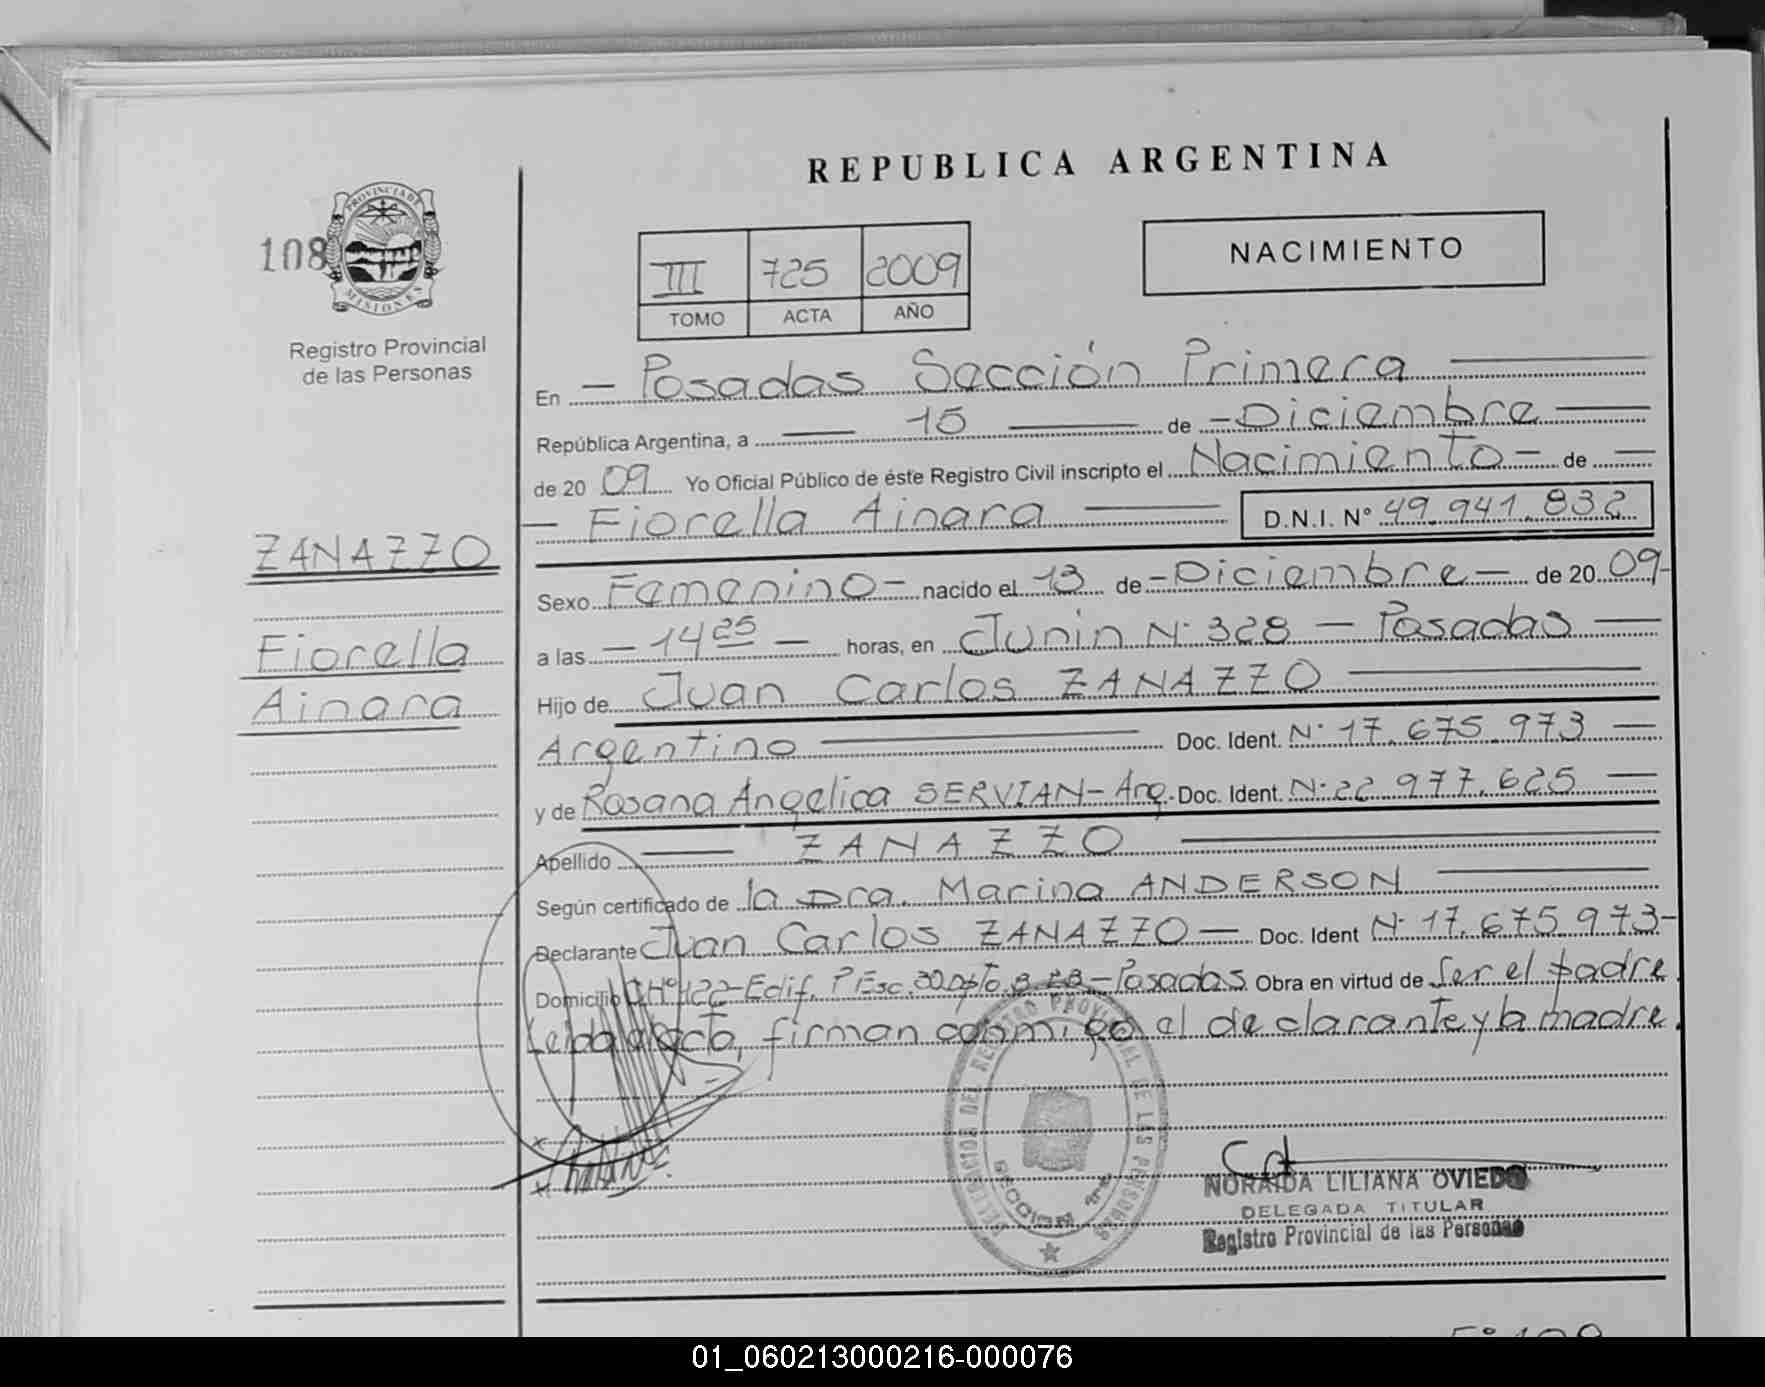 REPUBLICA ARGENTINA
108
PROVINCIA DE MISIONES
Registro Provincial
de las Personas
III 725 2009
TOMO ACTA AÑO
NACIMIENTO
En Posadas Sección Primera
República Argentina, a 15 de Diciembre
de 20 09 Yo Oficial Público de éste Registro Civil inscripto el Nacimiento de
Fiorella Ainara D.N.I. Nº 49.941.832
ZANAZZO
Fiorella
Ainara
Sexo Femenino nacido el 13 de Diciembre de 20 09
a las 14 25 horas, en Junin Nº 328 - Posadas
Hijo de Juan Carlos ZANAZZO
Argentino Doc. Ident. Nº 17.675.973
y de Rosana Angelica SERVIAN - Arg. Doc. Ident. Nº 22 977.625
Apellido ZANAZZO
Según certificado de la Dra. Marina ANDERSON
Declarante Juan Carlos ZANAZZO Doc. Ident Nº 17.675.973
Domicilio Edif. Posadas Obra en virtud de Ser el padre.
Leida el acta, firman conmigo el declarante y la madre.
DEL REGISTRO PROVINCIAL DE LAS PERSONAS
SECCION
NORAIDA LILIANA OVIEDO
DELEGADA TITULAR
Registro Provincial de las Personas
01_060213000216-000076